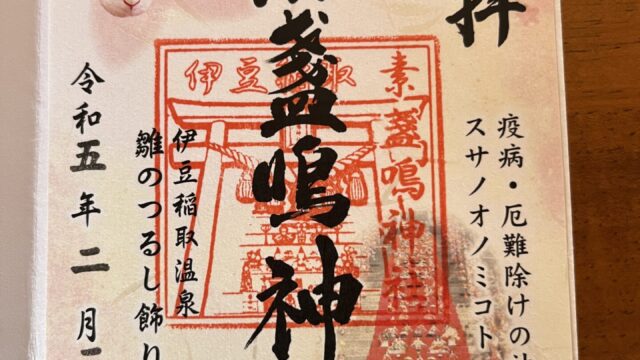 拝
疫病・厄難除けの
スサノオノミコト
素盞鳴神社
伊豆稲取
盞鳴神
伊豆稲取温泉
雛のつるし飾り
令和五年二月